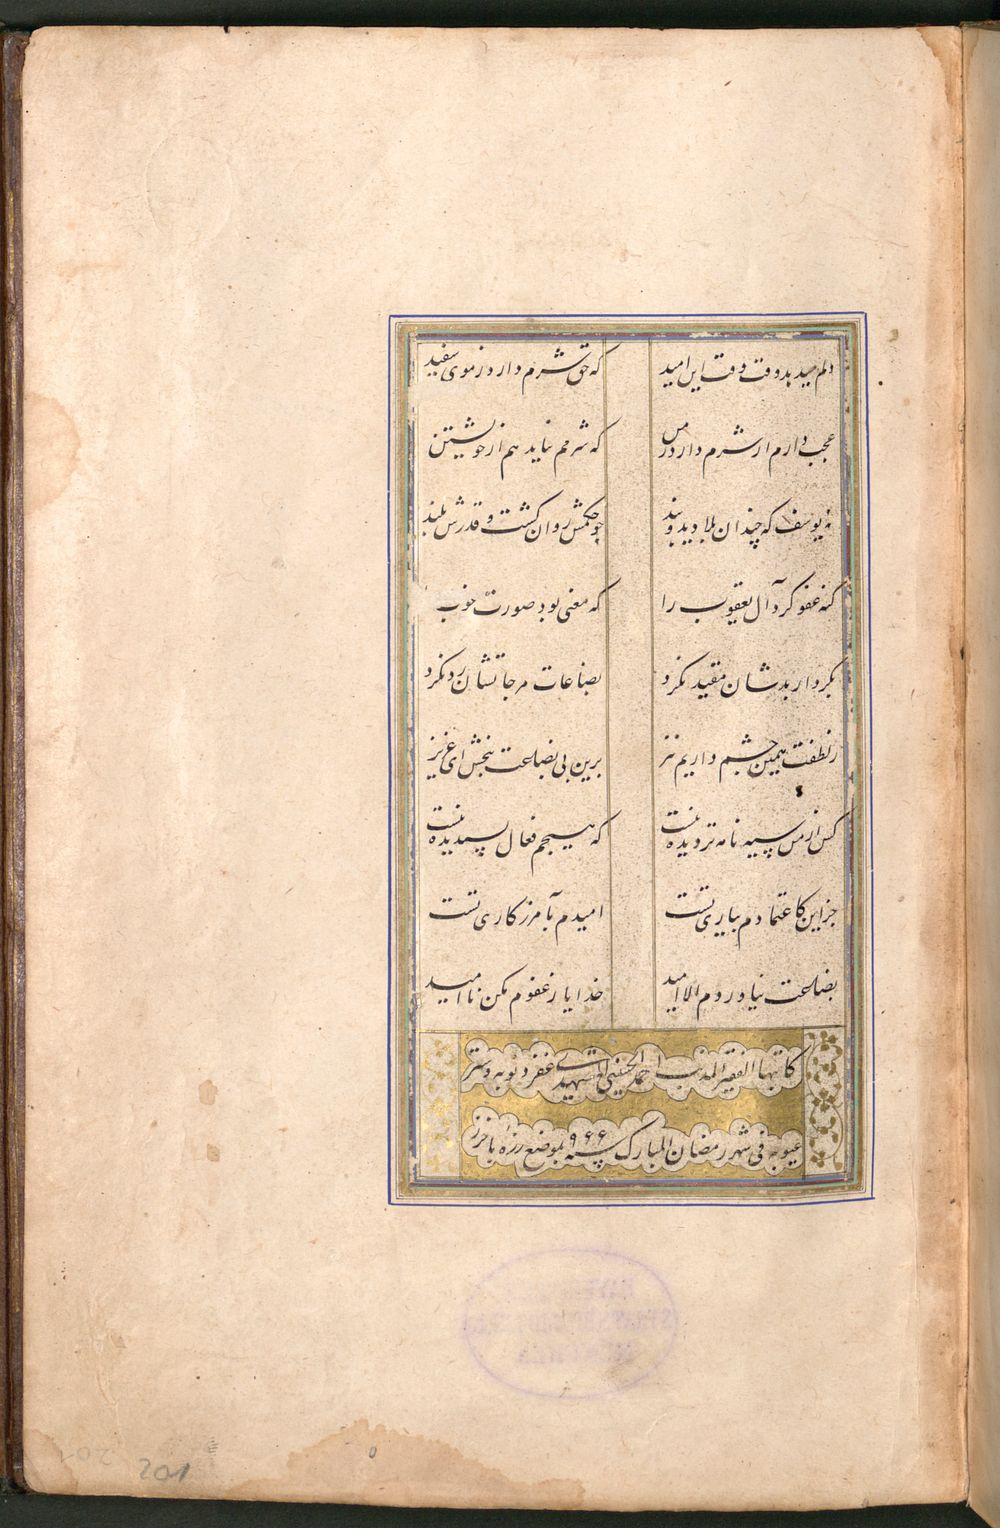 دلم میدهد وقت وقت این امید که حق شرم دارد ز موی سفید
عجب دارم ار شرم دارد ز من که شرمم نیاید هم از خویشتن
نه یوسف که چندان بلا دید و بند چو حکمش روان گشت و قدرش بلند
گنه عفو کرد آل یعقوب را که معنی بود صورت خوب
بکردار بدشان مقید نکرد بضاعات مزجاتشان رد نکرد
ز لطفت همین چشم داریم نیز برین بی بضاعت ببخش ای عزیز
کس از من سیه نامه تر دیده نیست که هیچم فعال پسندیده نیست
جز این کاعتمادم بیاری تست امیدم بآمرزگاری تست
بضاعت نیاوردم الا امید خدایا ز عفوم مکن ناامید
کاتبها الفقیر المذنب احمد الحسینی المشهدی غفر ذنوبه و ستر
عیوبه فی شهر رمضان المبارک سنه ۹۶۶ بموضع رزه باخرز
201